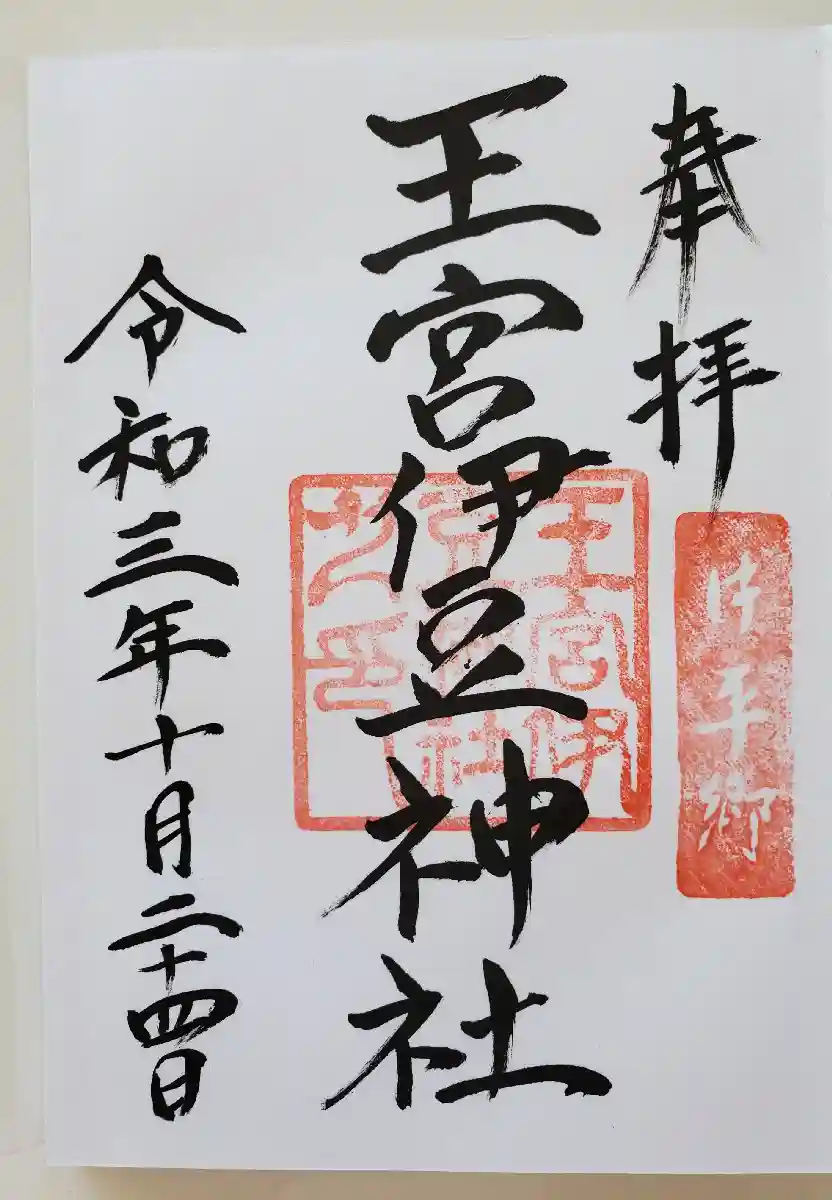 奉拝
王宮伊豆神社
令和三年十月二十四日
平郷
王宮伊
神社
之印